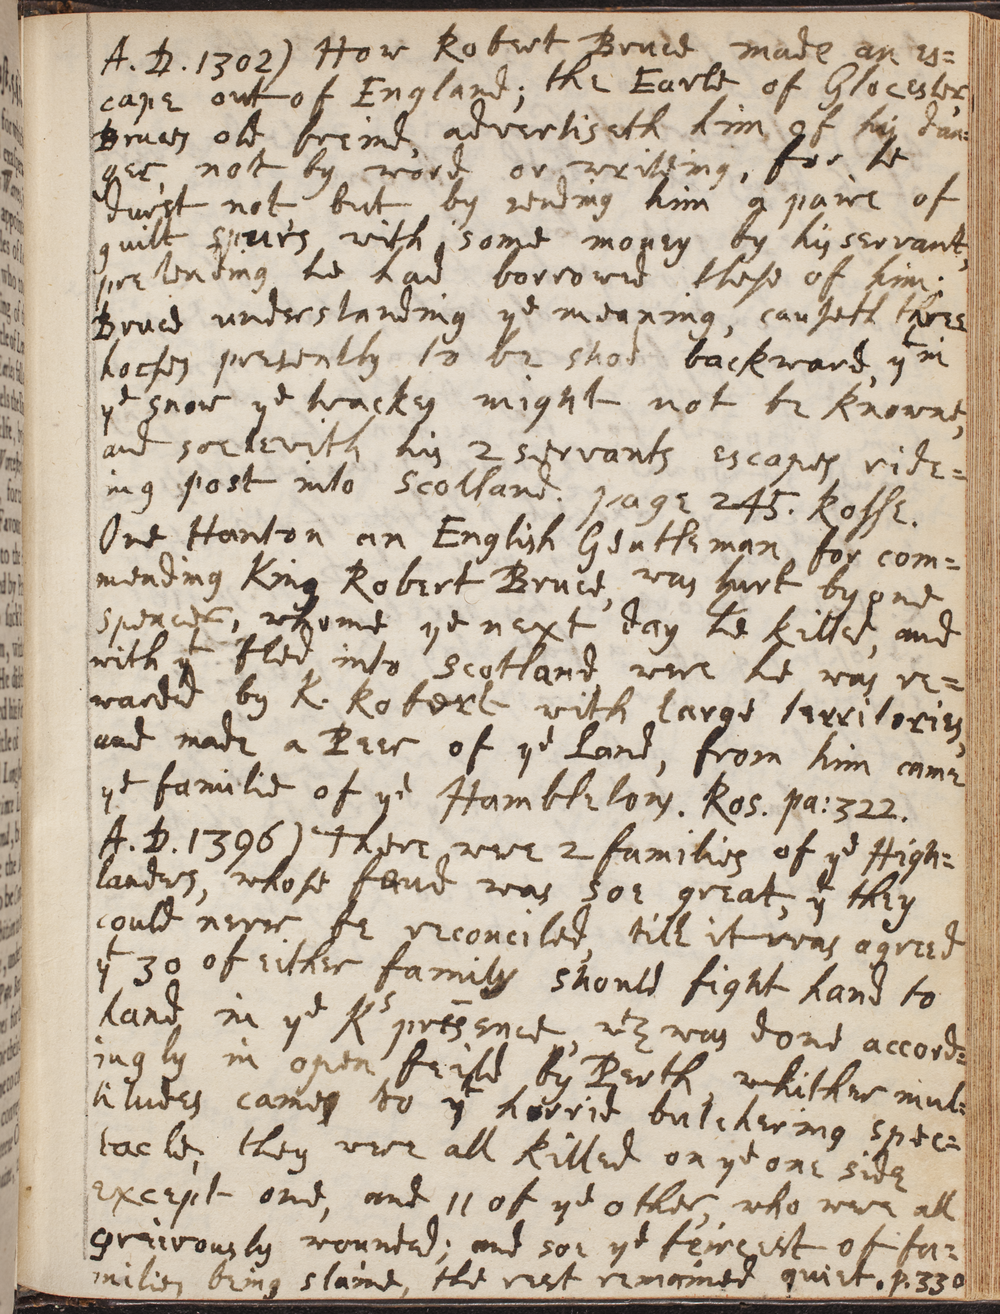 A.D. 1302) How Robert Bruce made an es=
cape out of England; the Earle of Glocester,
Bruces old freind, advertiseth him of his dan=
ger, not by word or writeing, for he
durst not, but by sending him a paire of
guilt spurs with some money by his servant,
pretending he had borrowed these of him:
Bruce understanding ye meaning, causeth three
horses presently to be shod backward, yt in
ye snow ye trackes might not be knowne,
and soe with his 2 servants escapes ride=
ing post into Scotland. page 245. Rosse.
One Hanton an English Gentleman, for com=
mending King Robert Bruce, was hurt by one
Spencer, whome ye next day he killed, and
with yt fled into Scotland were he was re=
warded by K. Robert with large territories,
and made a Peer of ye Land, from him came
ye familie of ye Hambletons. Ros. pa: 322.
A.D. 1396) There were 2 families of ye High=
landers, whose feud was soe great, yt they
could never be reconciled, till it was agreed
yt 30 of either family should fight hand to
hand in ye Ks presence, wch was done accord=
ingly in open feild by Perth, whither mul=
titudes came to yt horrid butchering spec=
tacle, they were all killed on ye one side
except one, and 11 of ye other, who were all
greivously wounded; and soe ye feircest of fa=
milies being slaine, the rest remained quiet. p. 330